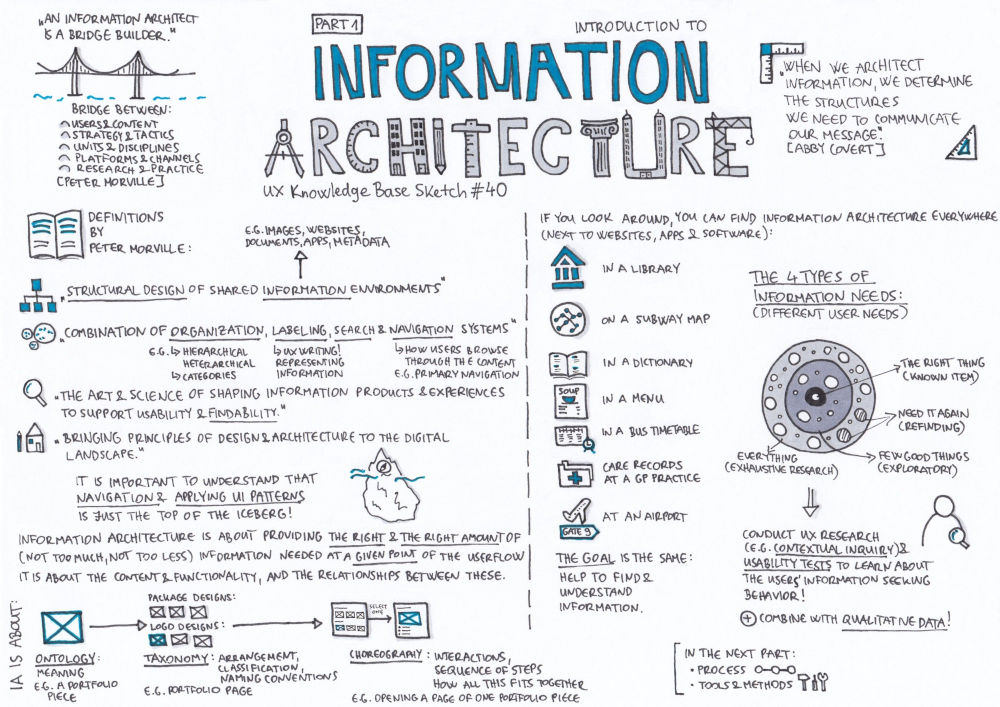 „AN INFORMATION ARCHITECT
IS A BRIDGE BUILDER."
BRIDGE BETWEEN:
USERS & CONTENT
STRATEGY & TACTICS
UNITS & DISCIPLINES
PLATFORMS & CHANNELS
RESEARCH & PRACTICE
[PETER MORVILLE]
PART 1
INTRODUCTION TO
INFORMATION
ARCHITECTURE
UX Knowledge Base Sketch #40
„WHEN WE ARCHITECT
INFORMATION, WE DETERMINE
THE STRUCTURES
WE NEED TO COMMUNICATE
OUR MESSAGE."
[ABBY COVERT]
DEFINITIONS
BY
PETER MORVILLE:
E.G. IMAGES, WEBSITES,
DOCUMENTS, APPS, METADATA
„STRUCTURAL DESIGN OF SHARED INFORMATION ENVIRONMENTS"
„COMBINATION OF ORGANIZATION, LABELING, SEARCH & NAVIGATION SYSTEMS"
E.G. HIERARCHICAL
HETERARCHICAL
CATEGORIES
UX WRITING!
REPRESENTING
INFORMATION
HOW USERS BROWSE
THROUGH THE CONTENT
E.G. PRIMARY NAVIGATION
„THE ART & SCIENCE OF SHAPING INFORMATION PRODUCTS & EXPERIENCES
TO SUPPORT USABILITY & FINDABILITY."
„BRINGING PRINCIPLES OF DESIGN & ARCHITECTURE TO THE DIGITAL
LANDSCAPE."
IT IS IMPORTANT TO UNDERSTAND THAT
NAVIGATION & APPLYING UI PATTERNS
IS JUST THE TOP OF THE ICEBERG!
INFORMATION ARCHITECTURE IS ABOUT PROVIDING THE RIGHT & THE RIGHT AMOUNT OF
(NOT TOO MUCH, NOT TOO LESS) INFORMATION NEEDED AT A GIVEN POINT OF THE USERFLOW
IT IS ABOUT THE CONTENT & FUNCTIONALITY, AND THE RELATIONSHIPS BETWEEN THESE.
IA IS ABOUT:
ONTOLOGY:
MEANING
E.G. A PORTFOLIO
PIECE
PACKAGE DESIGNS:
LOGO DESIGNS:
TAXONOMY: ARRANGEMENT,
CLASSIFICATION,
NAMING CONVENTIONS
E.G. PORTFOLIO PAGE
SELECT
ONE
CHOREOGRAPHY: INTERACTIONS,
SEQUENCE OF STEPS
HOW ALL THIS FITS TOGETHER
E.G. OPENING A PAGE OF ONE PORTFOLIO PIECE
IF YOU LOOK AROUND, YOU CAN FIND INFORMATION ARCHITECTURE EVERYWHERE
(NEXT TO WEBSITES, APPS & SOFTWARE):
IN A LIBRARY
ON A SUBWAY MAP
IN A DICTIONARY
SOUP
IN A MENU
IN A BUS TIMETABLE
CARE RECORDS
AT A GP PRACTICE
AT AN AIRPORT
GATE 9
THE GOAL IS THE SAME:
HELP TO FIND &
UNDERSTAND
INFORMATION.
THE 4 TYPES OF
INFORMATION NEEDS:
(DIFFERENT USER NEEDS)
THE RIGHT THING
(KNOWN ITEM)
NEED IT AGAIN
(REFINDING)
FEW GOOD THINGS
(EXPLORATORY)
EVERYTHING
(EXHAUSTIVE RESEARCH)
CONDUCT UX RESEARCH
(E.G. CONTEXTUAL INQUIRY) &
USABILITY TESTS TO LEARN ABOUT
THE USERS' INFORMATION SEEKING
BEHAVIOR!
+ COMBINE WITH QUALITATIVE DATA!
IN THE NEXT PART:
• PROCESS
• TOOLS & METHODS